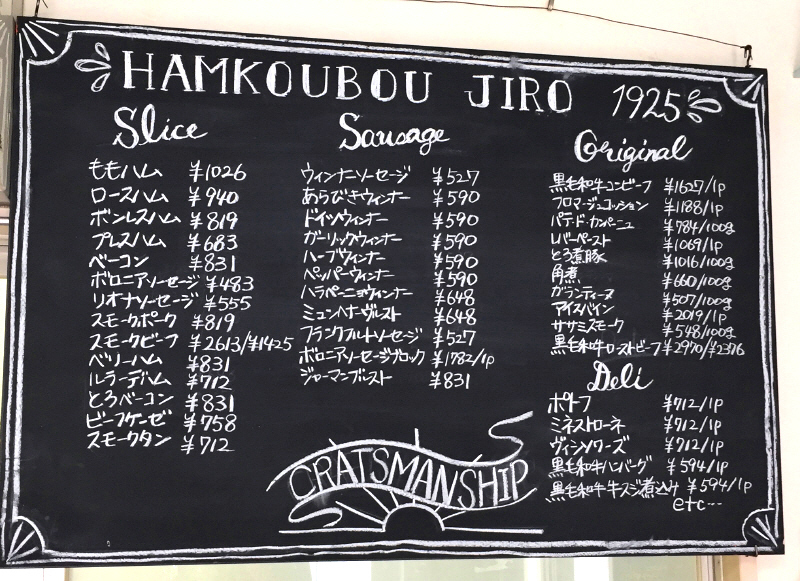 HAMKOUBOU JIRO 1925
Slice
ももハム ¥1026
ロースハム ¥940
ボンレスハム ¥819
プレスハム ¥683
ベーコン ¥831
ボロニアソーセージ ¥483
リオナソーセージ ¥555
スモークポーク ¥819
スモークビーフ ¥2613/¥1425
ベリーハム ¥831
ルラーデハム ¥712
とろベーコン ¥831
ビーフケーゼ ¥758
スモークタン ¥712
Sausage
ウィンナーソーセージ ¥527
あらびきウィンナー ¥590
ドイツウィンナー ¥590
ガーリックウィンナー ¥590
ハーブウィンナー ¥590
ペッパーウィンナー ¥590
ハラペーニョウィンナー ¥648
ミュンヘナーヴルスト ¥648
フランクフルトソーセージ ¥527
ボロニアソーセージブロック ¥1782/1p
ジャーマンブルスト ¥831
Original
黒毛和牛コンビーフ ¥1627/1p
フロマージュコションン ¥1188/1p
パテ・ド・カンパーニュ ¥784/100g
レバーペースト ¥1069/1p
とろ煮豚 ¥1016/100g
角煮 ¥660/100g
ガランティーヌ ¥507/100g
アイスバイン ¥2019/1p
ササミスモーク ¥548/100g
黒毛和牛ローストビーフ ¥2970/¥2376
Deli
ポトフ ¥712/1p
ミネストローネ ¥712/1p
ヴィシソワーズ ¥712/1p
黒毛和牛ハンバーグ ¥594/1p
黒毛和牛牛スジ煮込み ¥594/1p
etc…
CRATSMANSHIP